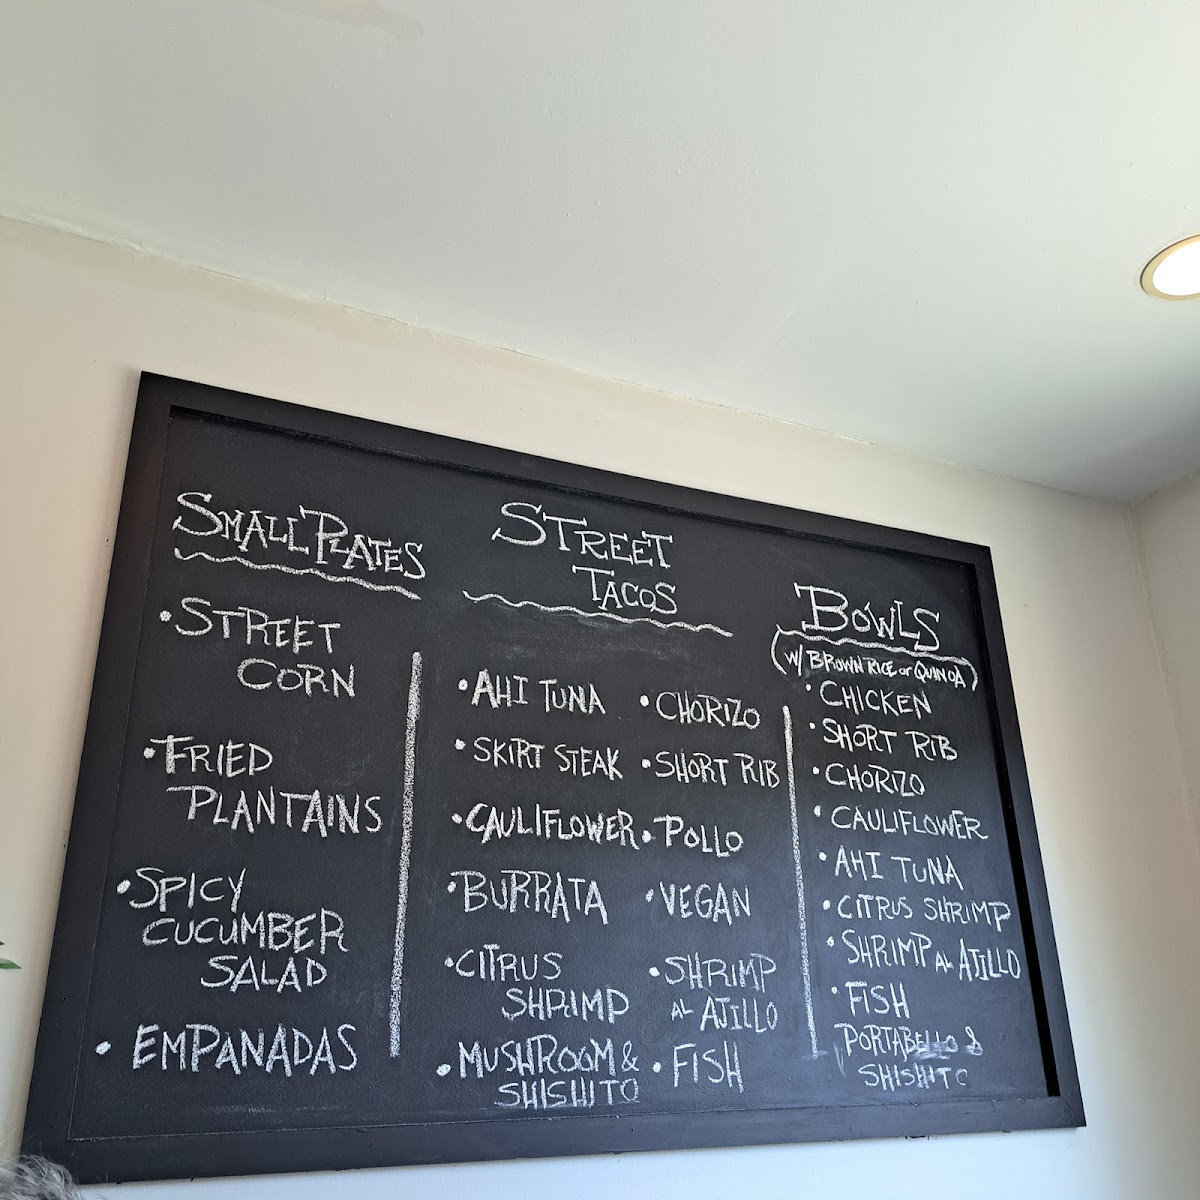 SMALL PLATES
• STREET
CORN
• FRIED
PLANTAINS
• SPICY
CUCUMBER
SALAD
• EMPANADAS
STREET
TACOS
• AHI TUNA
• SKIRT STEAK
• CAULIFLOWER
• BURRATA
• CITRUS
SHRIMP
• MUSHROOM &
SHISHITO
• CHORIZO
• SHORT RIB
• POLLO
• VEGAN
• SHRIMP
AL AJILLO
• FISH
BOWLS
(W/ BROWN RICE or QUINOA)
• CHICKEN
• SHORT RIB
• CHORIZO
• CAULIFLOWER
• AHI TUNA
• CITRUS SHRIMP
• SHRIMP AL AJILLO
• FISH
PORTABELLO &
SHISHITO